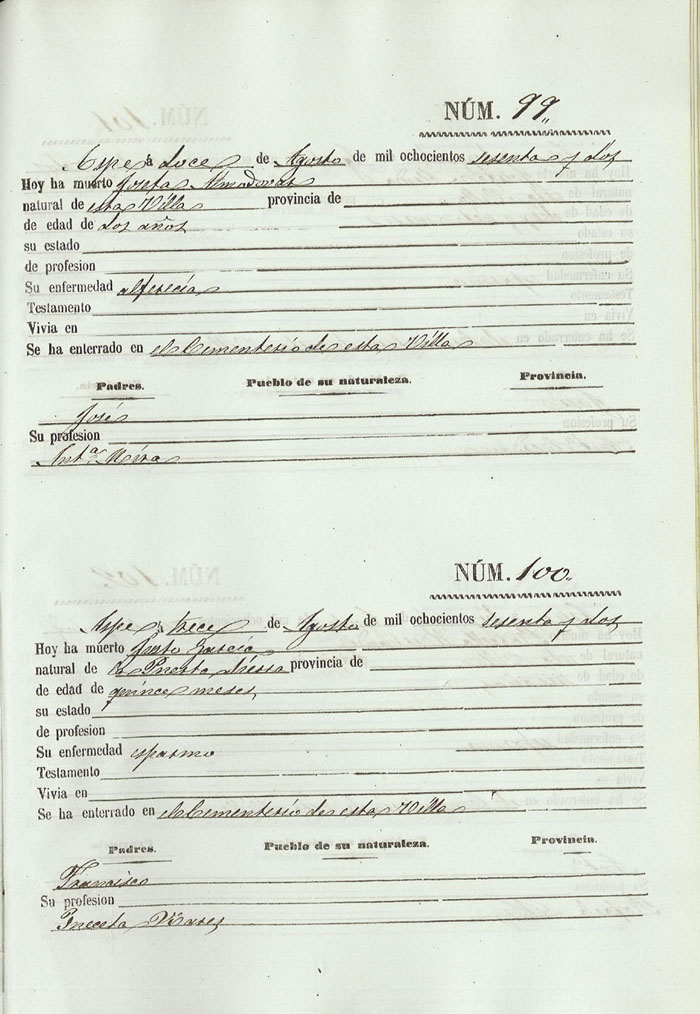 NÚM. 99.
Aspe a doce de Agosto de mil ochocientos sesenta y dos
Hoy ha muerto Justa Almodovar
natural de esta Villa provincia de
de edad de dos años
su estado
de profesion
Su enfermedad alferecia
Testamento
Vivia en
Se ha enterrado en el Cementerio de esta Villa
Padres. Pueblo de su naturaleza. Provincia.
José
Su profesion
Antª Mira
NÚM. 100.
Aspe a trece de Agosto de mil ochocientos sesenta y dos
Hoy ha muerto Justo Garcia
natural de provincia de
de edad de quince meses
su estado
de profesion
Su enfermedad espasmo
Testamento
Vivia en
Se ha enterrado en el Cementerio de esta Villa
Padres. Pueblo de su naturaleza. Provincia.
Francisco
Su profesion